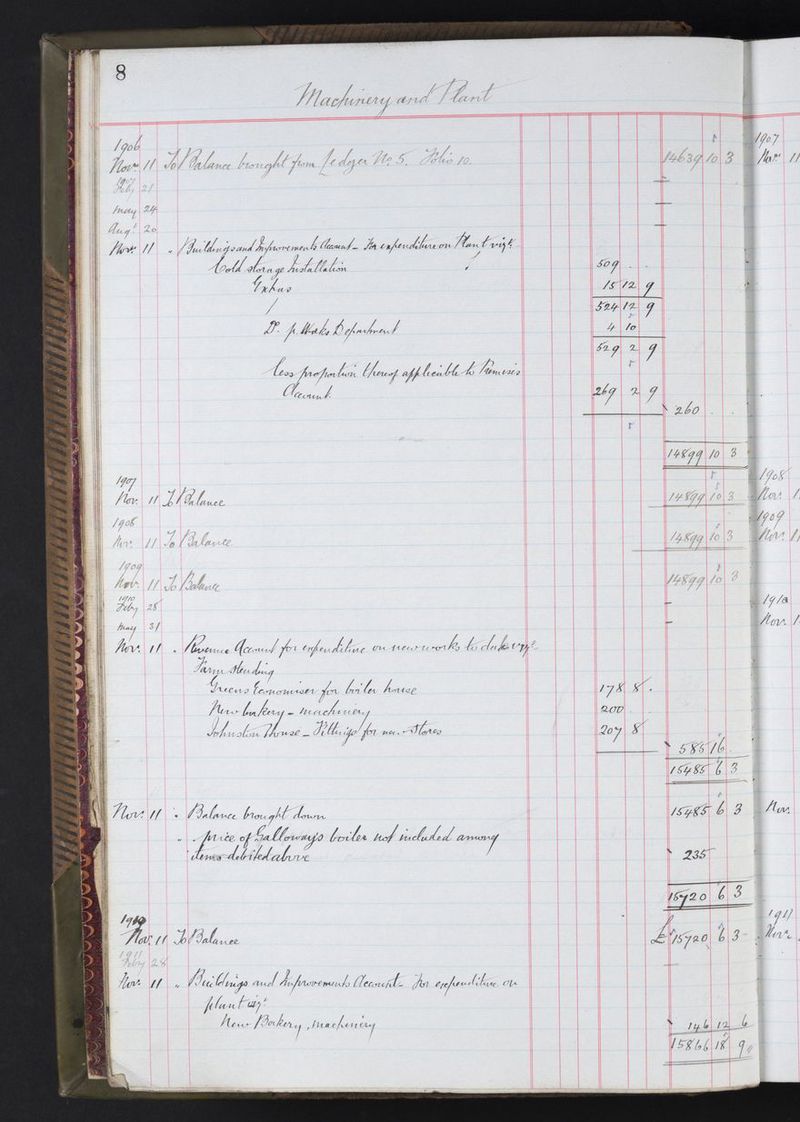 8
Machinery and Plant
1906
Novr. 11 To Balance brought from Ledger No. 5. Folio 10 14639 10 3
1907
Feby 21 —
May 24 —
Augt. 20 —
Novr. 11 " Buildings and Improvements Account - For expenditure on Plant vizt.
Cold storage Installation 509 . .
Extras 15 12 9
524 12 9
Do. p. Works Department 4 10
529 2 9
Less proportion thereof applicable to Premises
Account 269 2 9
260 . .
14899 10 3
1907
Nov. 11 To Balance 14899 10 3
1908
Nov. 11 To Balance 14899 10 3
1909
Nov. 11 To Balance 14899 10 3
1910
Feby 28 —
May 31 —
Nov. 11 " Revenue Account for expenditure on new works to date vizt.
Farm Steading
Greens Economiser for boiler house 178 8 .
New bakery - machinery 200
Johnston house - Fittings for stores 207 8
585 16
15485 6 3
Nov. 11 " Balance brought down 15485 6 3
" price of Galloways boiler not included among
items debited above 235
15720 6 3
1910
Nov. 11 To Balance £ 15720 6 3
1911
Feby 28 —
Nov. 11 " Buildings and Improvements Account - For expenditure on
plant vizt.
New Bakery, machinery 146 12 6
15866 18 9
1907
Novr. 11
1908
Nov. 1
1909
Nov. 11
1910
Nov. 1
Nov.
1911
Nov.